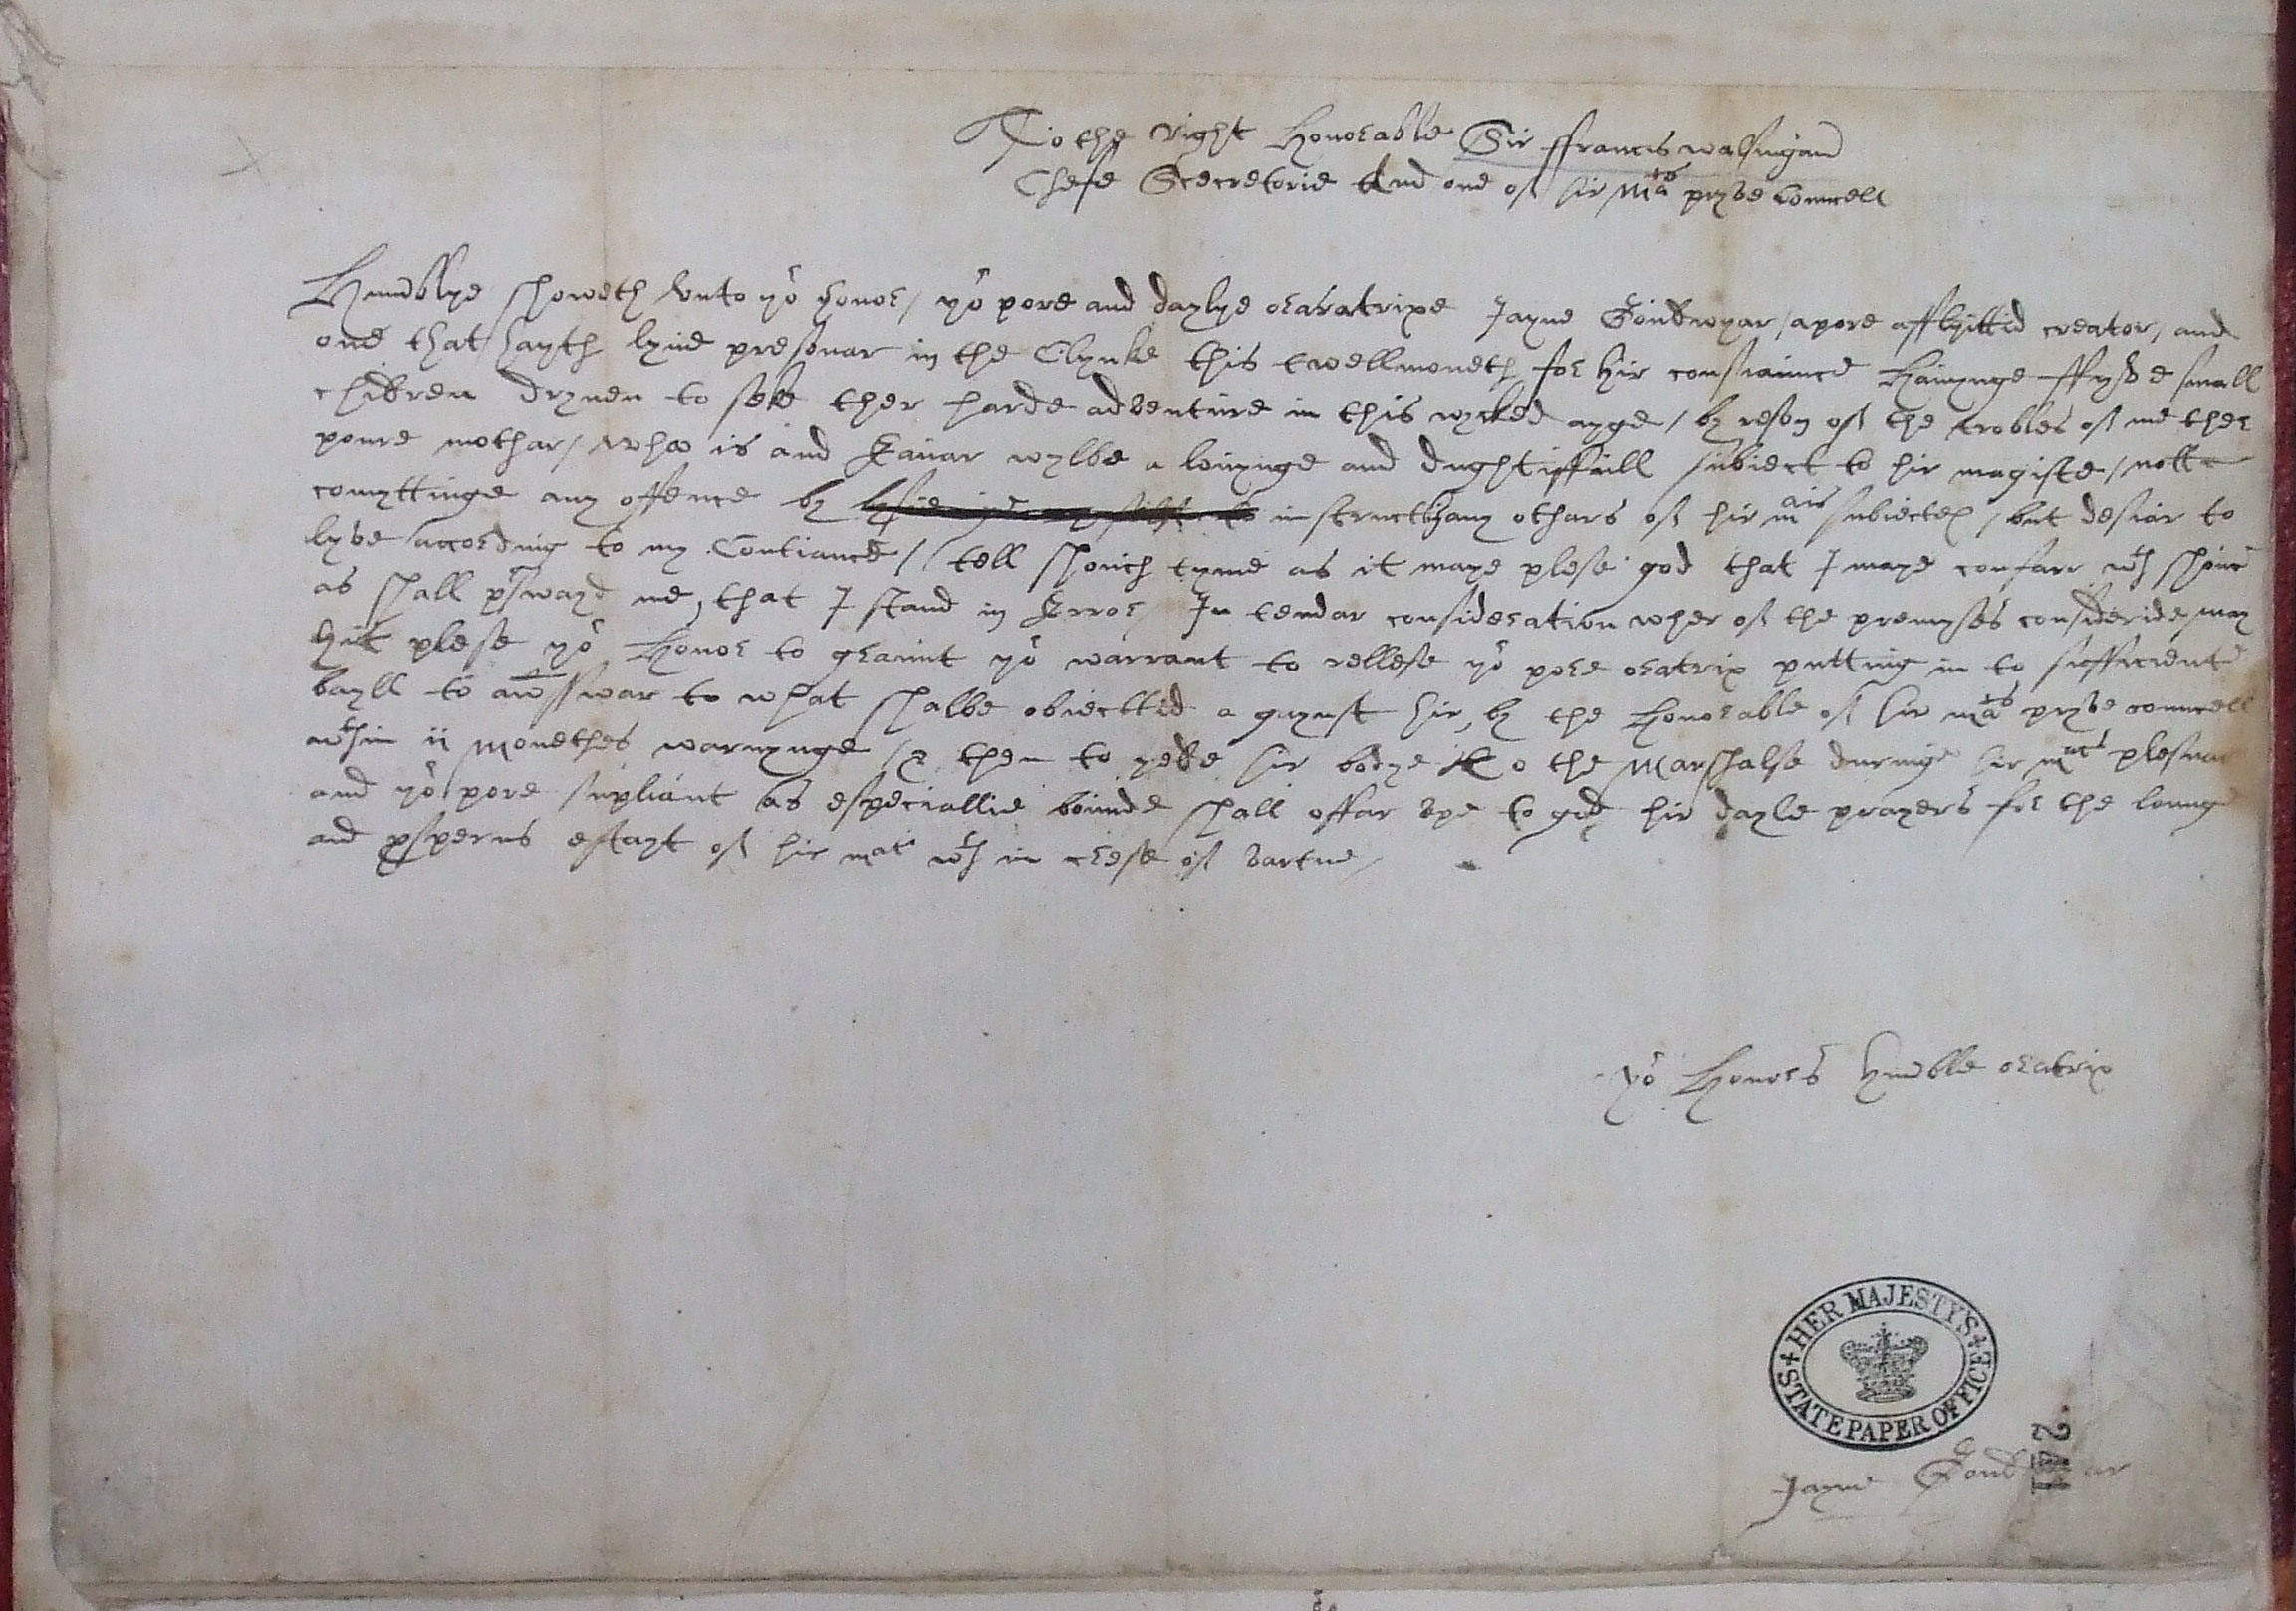 To the right Honorable Sir ffrancis walsingam
Chefe Secretorie And one of hir Mats pryve Councell
Humblye showeth unto yor honor / yor pore and daylye oratrixe Jayne / a pore afflyittid creator / and
one that hayth lyne presonar in the Clynke this twellmoneth for hir constiaince Havynge ffyve small
children dryven to seke ther harde adventure in this wycked ayge / by reson of the trobles of me ther
poure mothar / who is and Eavar wylbe a lovynge and dughtiffull subiect to hir magiste / notte
comyttinge any offence by instructhynany othars of hir mais subiectes / but desiar to
lyve according to my Contiance / tell shouch tyme as it maye plese god that I maye confarr wth shouc
as shall pswayd me, that I stand in Error / In tendar consideration wher of the premyses consideride may
hit plese yor Honor to graunt yor warrant to rellese yor pore oratrix putting in to sufficiente
bayll to answar to what shalbe obiecttid a gaynst hir, by the Honorable of hir mats pryve councell
wthin ii monethes warnynge / & then to yelde hir bodye to the Marshalse duringe hir mats plesuar
and yor pore supliant as especiallie bounde shall offar vpe to god hir dayle prayers for the longe
and psperus estayt of hir mati wth in crese of vartue /
yor Honors humble oratrix
HER MAJESTY'S STATE PAPER OFFICE
241
Jayne